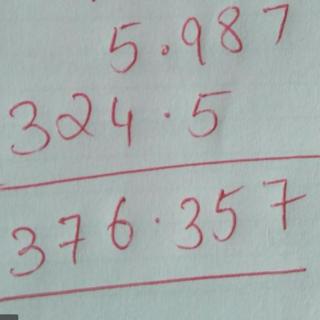 5.987
324.5
376.357